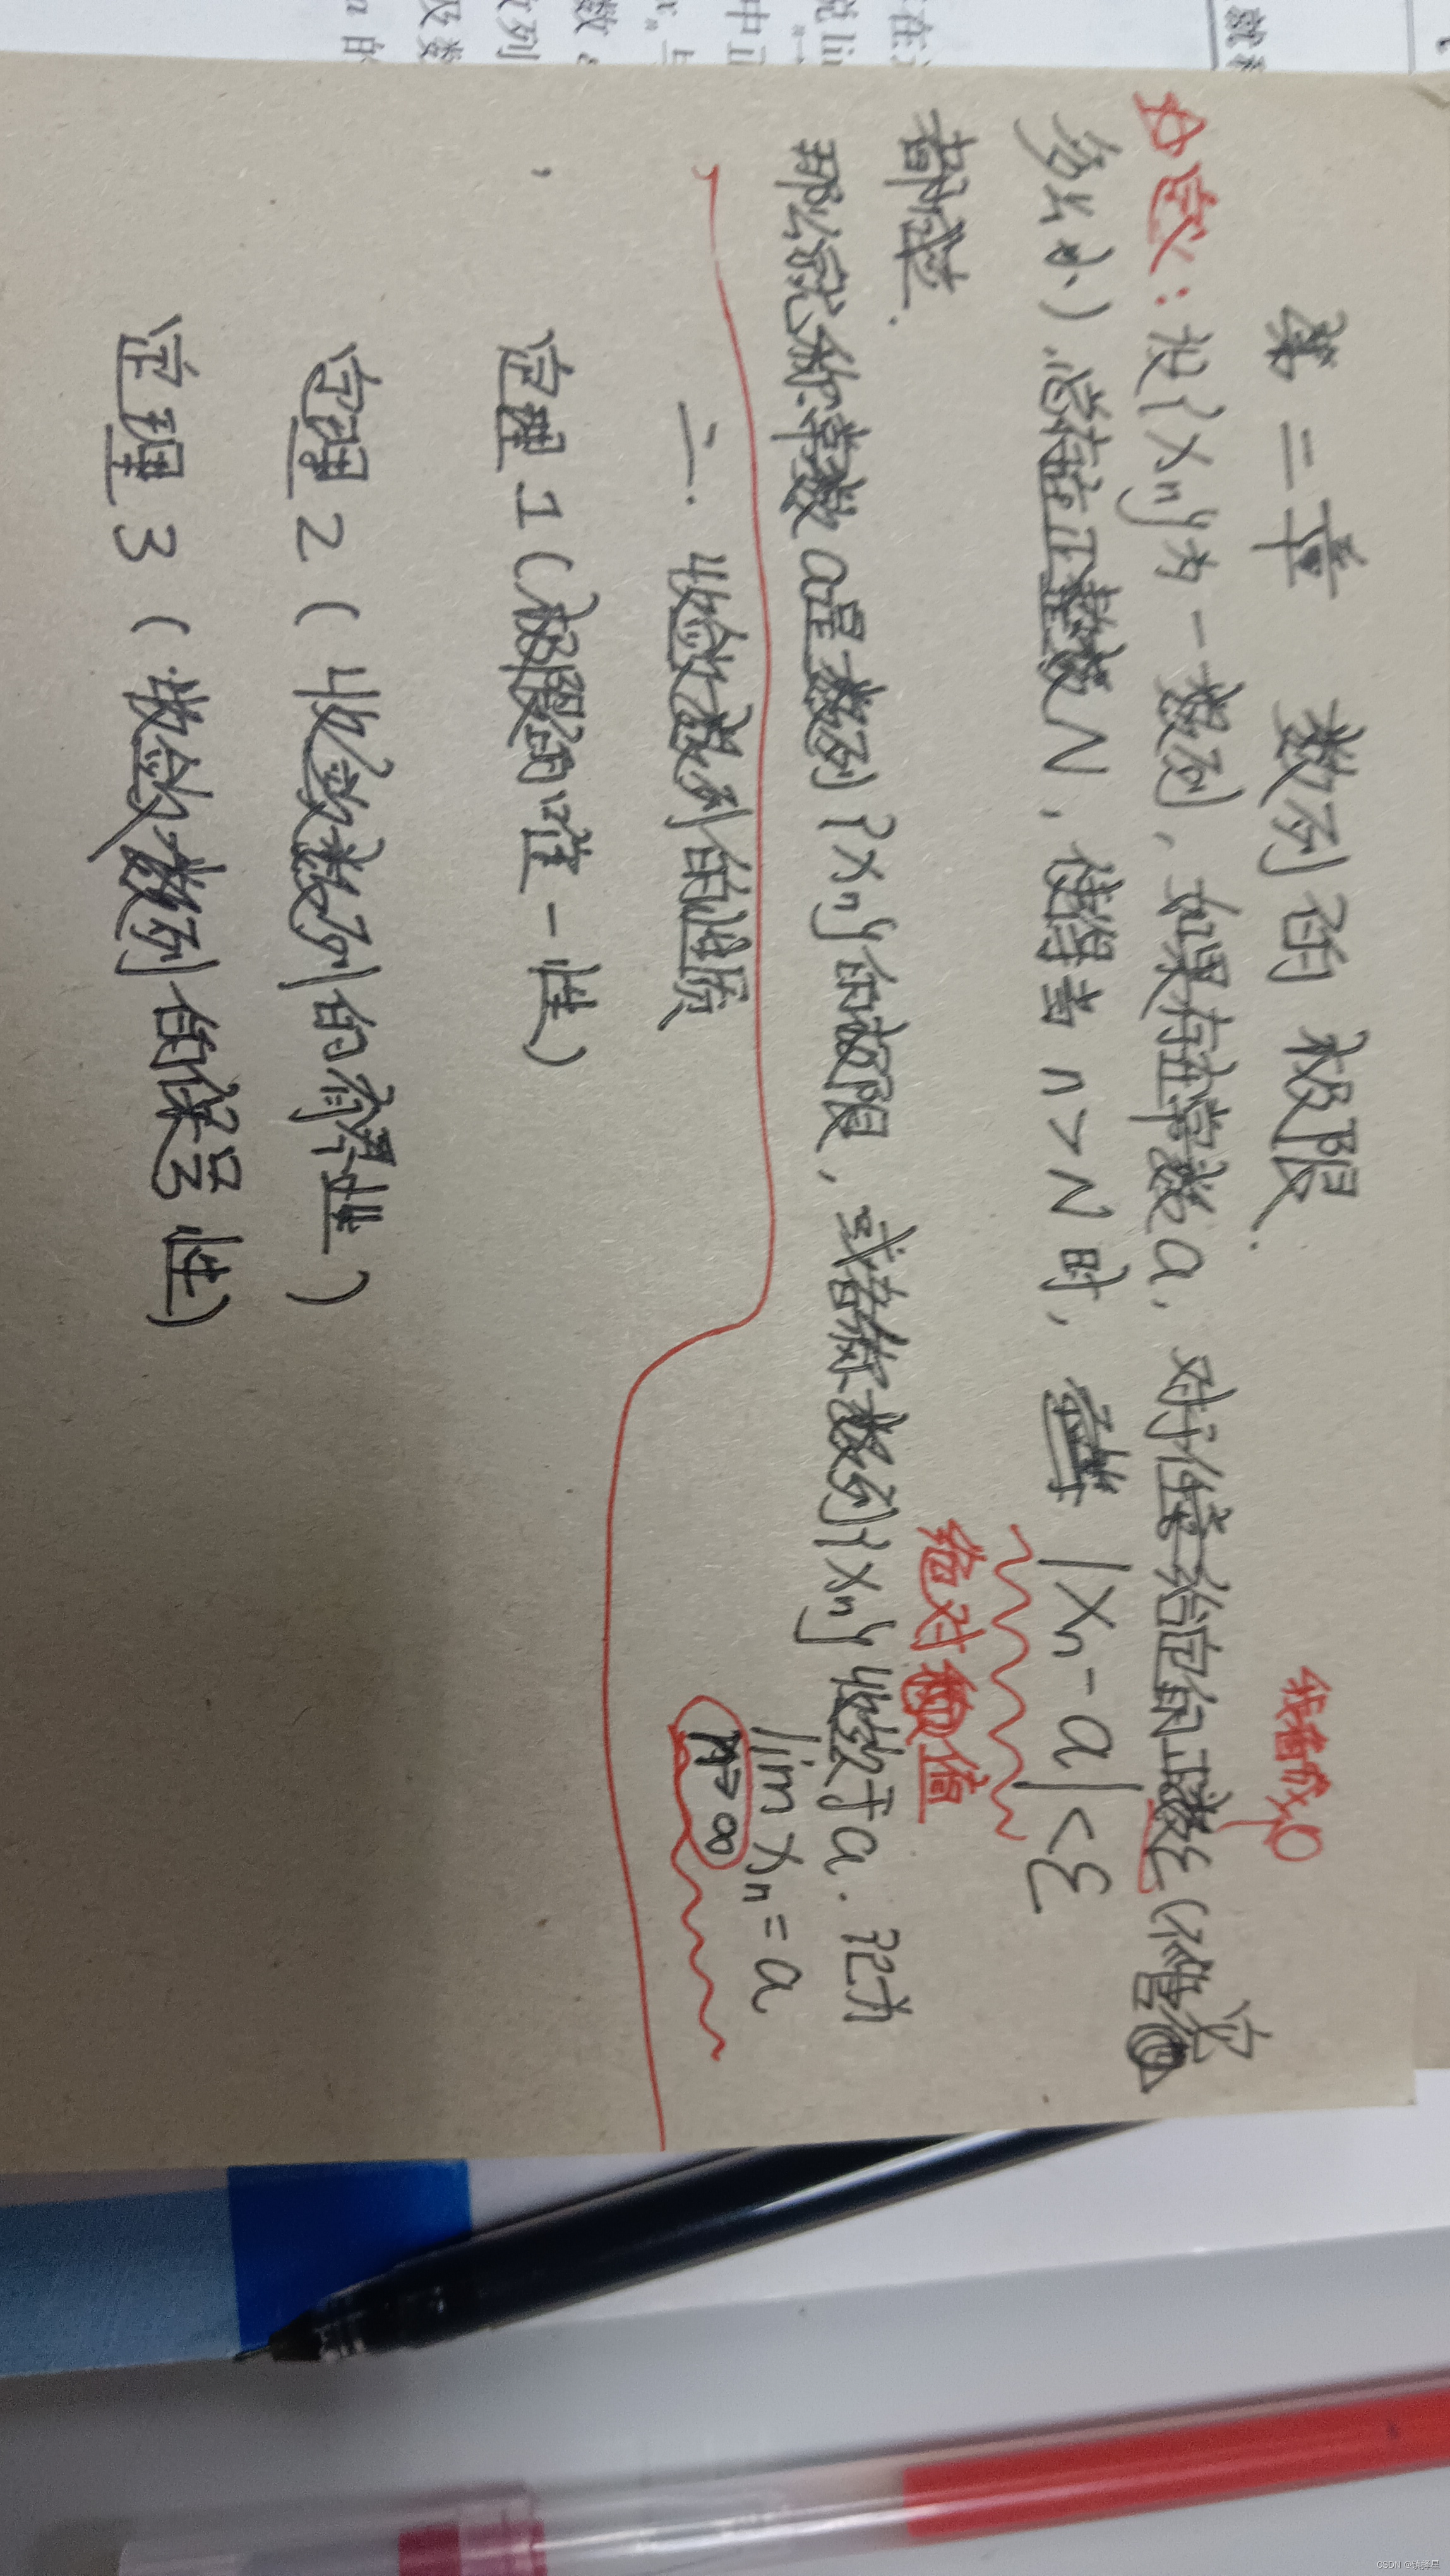 第二章 数列的极限.
我看成0
☆定义：设{xn}为一数列，如果存在常数a，对于任意给定的正数ε(不管它
多么小)，总存在正整数N，使得当n>N时，
|xn-a|<ε
绝对值
都成立.
那么就称常数a是数列{xn}的极限，或者称数列{xn}收敛于a. 记为
lim xn=a
n→∞
二. 收敛数列的性质
定理1(极限的唯一性)
定理2(收敛数列的有界性)
定理3(收敛数列的保号性)
CSDN